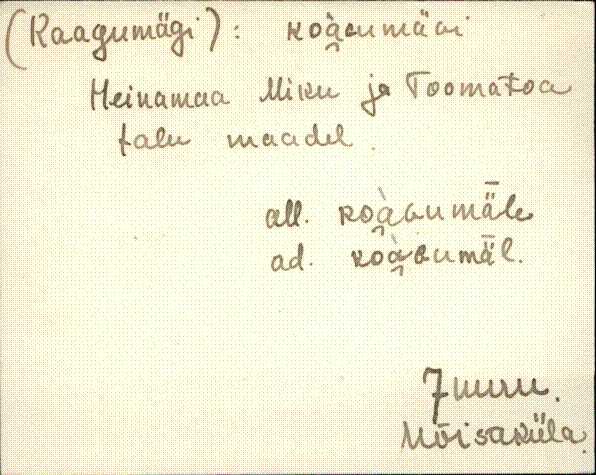 (Kaagumägi): koàɢumäɢi
Heinamaa Miku ja Toomatoa
talu maadel.
all. koàɢumǟle
ad. koàɢumǟl.
Muru.
Mõisaküla.